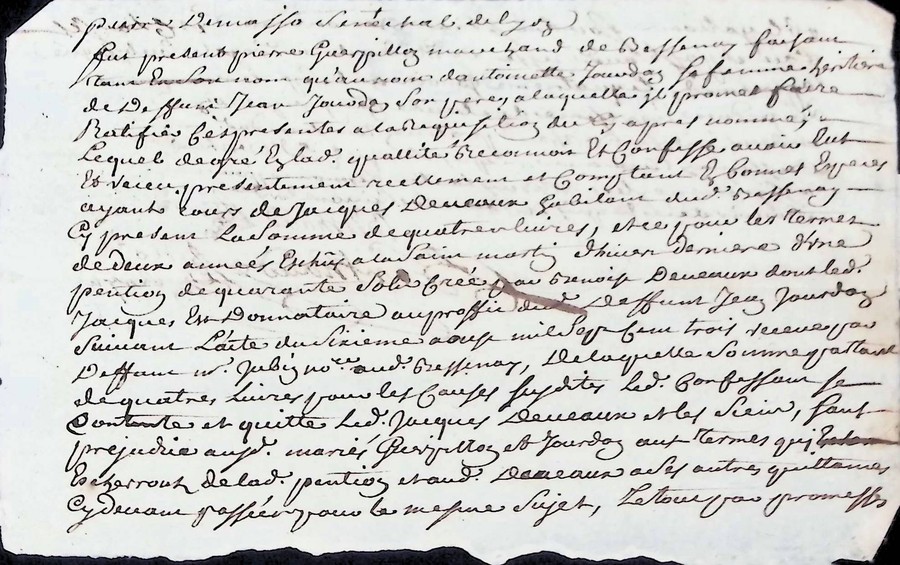 pierre Demasso Senechal de lyon
fut present pierre Guerpillon marchand de Bessenay faisant
tant En Son nom qu'au nom dantoinette Jourdan sa femme heritiere
de Deffunt Jean Jourdan Son pere, a laquelle jl promet faire
Ratifié Ces presentes a la Requisition du Cy apres nommé,
Lequel de gré Ezlad. quallité Reconnoit Et Confesse avoir Eut
Et Reçeu presentement reellement et Comptant Ez bonnes Especes
ayant cours de Jacques Deveaux habitant dud. Bessenay
Cy present La Somme de quatre livres, et ce pour les termes
de deux années Escheus a la Saint martin d'hiver derniere d'Une
pention de quarante Sols Créé par Benoist Deveaux dont led.
Jacques Est Donnataire au proffit dud. deffunt Jean Jourdan
Suivant L'acte du Sixieme aoust mil Sept Cent trois receue par
Deffunt me. Jubin nore. aud. Bessenay, De laquelle Somme partant
de quatre Livres pour les Causes Susdites Led. Confessant se
Contente et quitte Led. Jacques Deveaux et les Siens, Sans
prejudice ausd. mariés Guerpillon et Jourdan aux termes qui
Escherront de lad. pention et aud. Deveaux a Ses autres quittances
Cydevant passées pour le mesme Sujet, Le tout par promesses